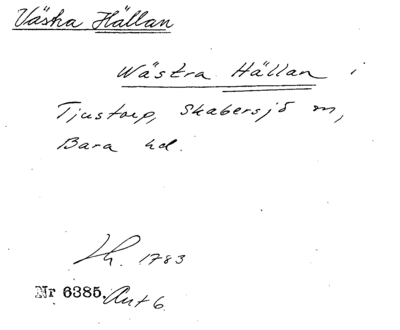 Västra Hällan
Wästra Hällan i
Tjustorp, Skabersjö sn,
Bara hd.
Lh. 1783
Nr 6385. Ant 6.